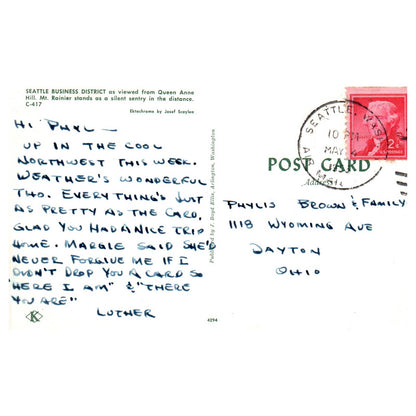 SEATTLE BUSINESS DISTRICT as viewed from Queen Anne
Hill. Mt. Rainier stands as a silent sentry in the distance.
C-417
Ektachrome by Josef Scaylea
HI PHYL —
UP IN THE COOL
NORTHWEST THIS WEEK.
WEATHER'S WONDERFUL
THO. EVERYTHING'S JUST
AS PRETTY AS THE CARD.
GLAD YOU HAD A NICE TRIP
HOME. MARGIE SAID SHE'D
NEVER FORGIVE ME IF I
DIDN'T DROP YOU A CARD SO
"HERE I AM" & "THERE
YOU ARE"
LUTHER
K
4294
Published by J. Boyd Ellis, Arlington, Washington
SEATTLE, WASH.
10 PM
MAY
POST CARD
Address
2¢
PHYLIS BROWN & FAMILY
1118 WYOMING AVE
DAYTON
OHIO